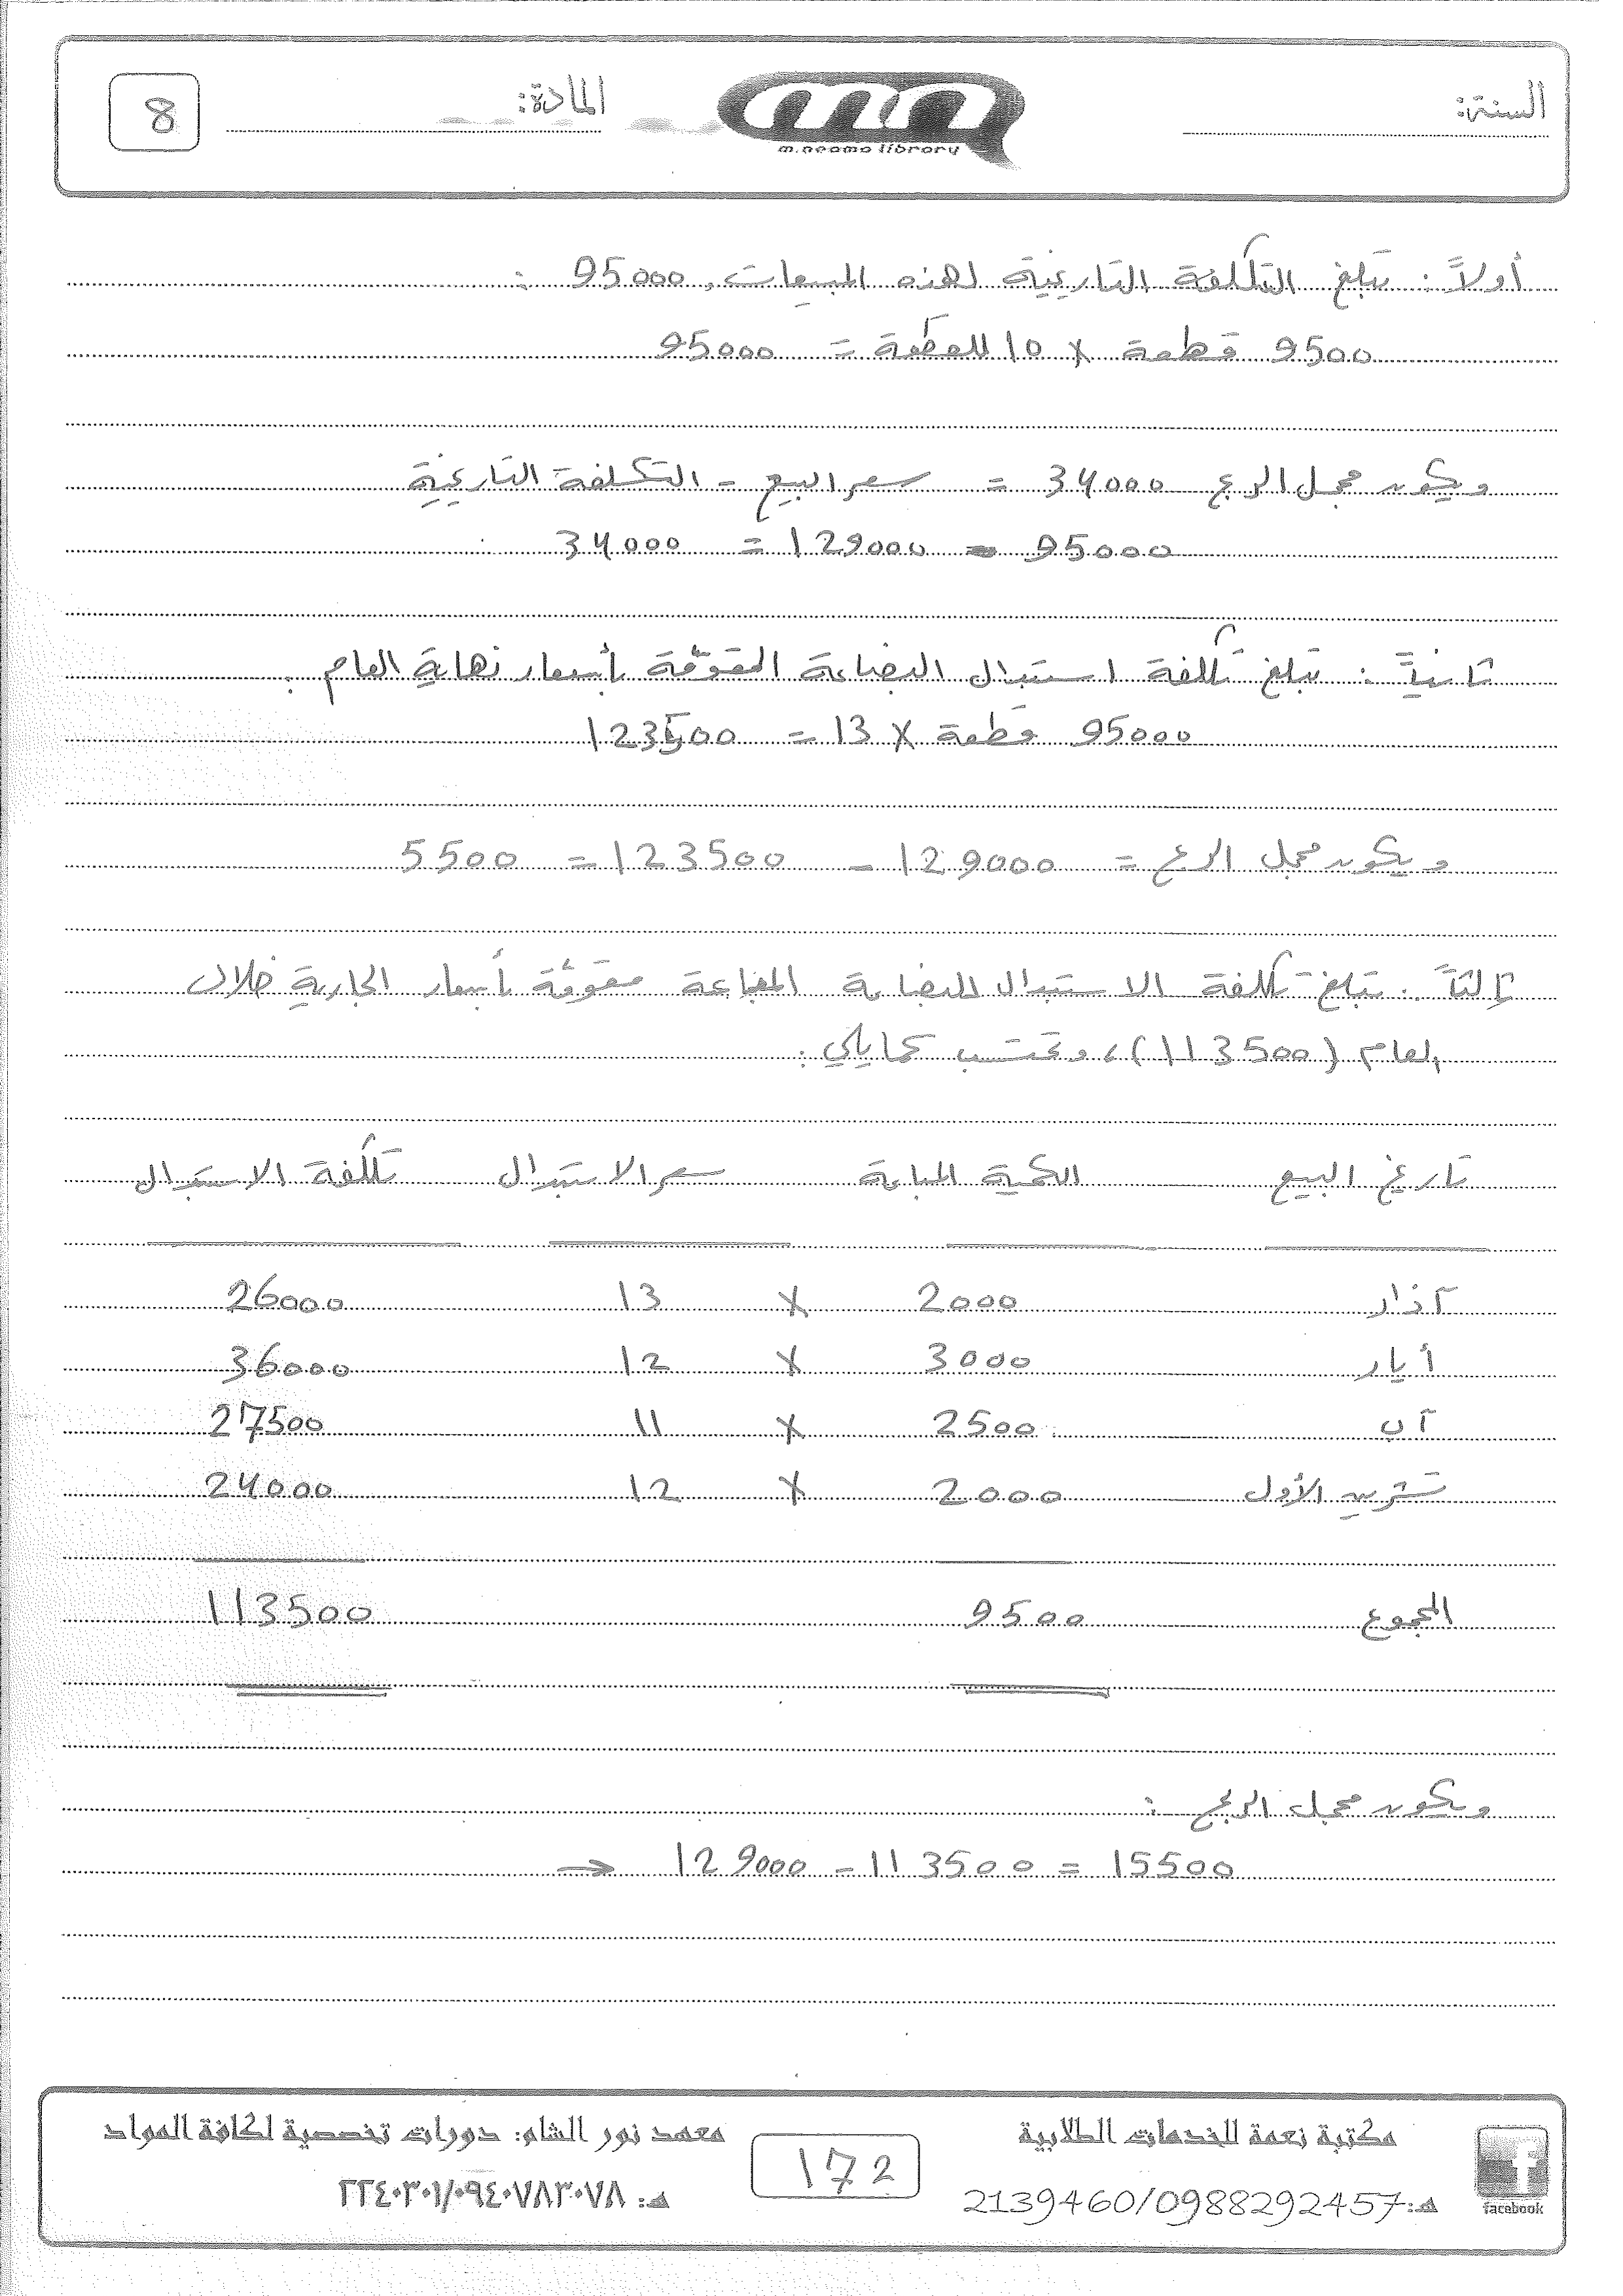 السنة:
m.neama library
المادة:
8
أولاً: تبلغ التكلفة التاريخية لهذه المبيعات 95000 :
9500 قطعة × 10 للقطعة = 95000
ويكون مجمل الربح 34000 = سعر البيع - التكلفة التاريخية
34000 = 129000 - 95000
ثانياً: تبلغ تكلفة استبدال البضاعة المقوّمة بأسعار نهاية العام :
95000 قطعة × 13 = 123500
ويكون مجمل الربح = 129000 - 123500 = 5500
ثالثاً: تبلغ تكلفة الاستبدال للبضاعة المباعة مقوّمة بأسعار الجارية خلال
العام (113500)، وتحتسب كمايلي :
تاريخ البيع الكمية المباعة سعر الاستبدال تكلفة الاستبدال
آذار 2000 × 13 26000
أيار 3000 × 12 36000
آب 2500 × 11 27500
تشرين الأول 2000 × 12 24000
المجموع 9500 113500
ويكون مجمل الربح :
129000 - 113500 = 15500
facebook
مكتبة نعمة للخدمات الطلابية
هـ: 2139460/0988292457
172
معهد نور الشام: دورات تخصصية لكافة المواد
هـ: ٢٢٤٠٣٠١/٠٩٤٠٧٨٣٠٧٨